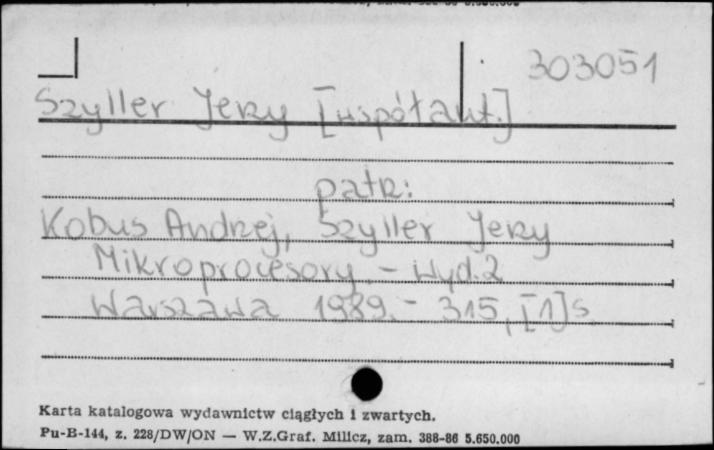 303051
Szyller Jerzy [współaut.]
patrz:
Kobus Andrzej, Szyller Jerzy
Mikroprocesory. - Wyd. 2
Warszawa 1989. - 315, [1] s.
Karta katalogowa wydawnictw ciągłych i zwartych.
Pu-B-144, z. 228/DW/ON — W.Z.Graf. Milicz, zam. 388-86 5.650.000